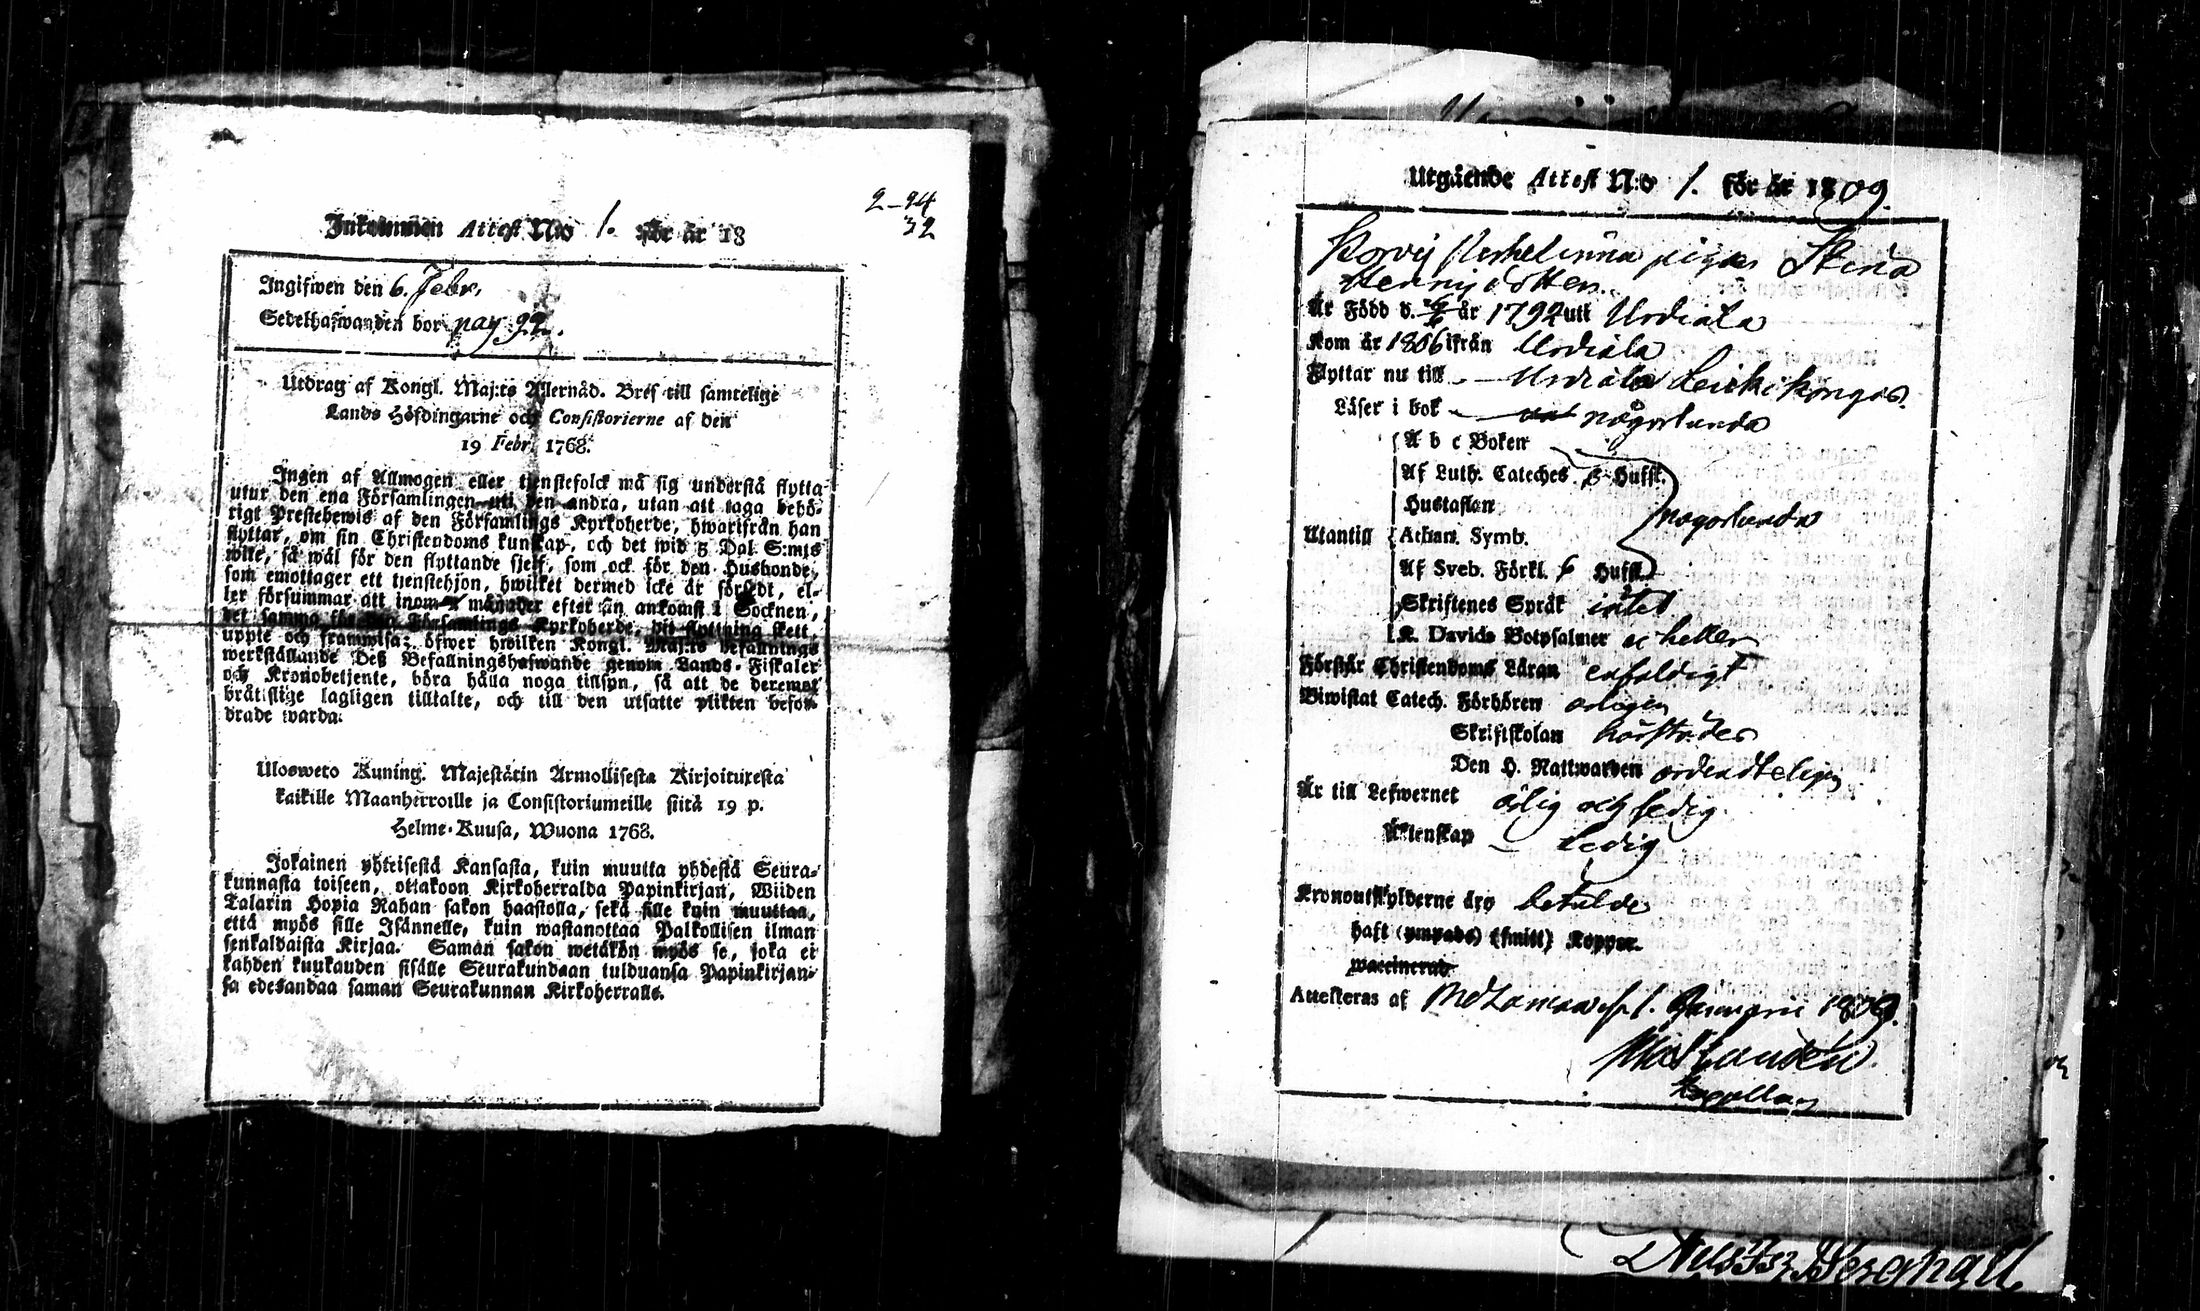 2-94
32
Inkommen Attest N:o 1. för år 18
Ingifwen den 6. Febr.
Sedelhafwanden bor pag 92.
Utdrag af Kongl. Maj:ts Allernåd. Bref till samtelige
Lands Höfdingarne och Consistorierne af den
19 Febr. 1768.
Ingen af Allmogen eller tjenstefolck må sig understå flytta
utur den ena Församlingen uti den andra, utan att taga behö-
rigt Prestebewis af den Församlings Kyrkoherde, hwarifrån han
flyttar, om sin Christendoms kunskap, och det wid 5 Dal. S:mts
wite, så wäl för den flyttande sjelf, som ock för den Husbonde,
som emottager ett tienstehjon, hwilket dermed icke är försedt, el-
ler försummar att inom månader efter sin ankomst i Socknen,
det samma för Församlings Kyrkoherde, dit flyttning skett,
uppte och framwisa; öfwer hwilken Kongl. Maj:ts befallnings
werkställande Deß Befallningshafwande genom Lands-Fiskaler
och Kronobetjente, böra hålla noga tillsyn, så att de deremot
bråtislige lagligen tilltalte, och till den utsatte plikten befor-
drade warda.
Ulosweto Kuning. Majestätin Armollisesta Kirjoituxesta
kaikille Maanherroille ja Consistoriumeille siitä 19 p.
Helme-Kuusa, Wuona 1768.
Jokainen yhteisestä Kansasta, kuin muutta yhdestä Seura-
kunnasta toiseen, ottakoon Kirkoherralda Papinkirjan, Wiiden
Talarin Hopia Rahan sakon haastolla, sekä sille kuin muuttaa,
että myös sille Isännelle, kuin wastanottaa Palkollisen ilman
senkaldaista Kirjaa. Saman sakon wetäkön myös se, joka ei
kahden kuukauden sisälle Seurakundaan tulduansa Papinkirjan-
sa edesandaa saman Seurakunnan Kirkoherralle.
Utgående Attest N:o 1. för år 1809.
pigan Stina
Henrijcsdotter
Är Född d. år 1792 uti Urdiala
Kom år 1806 ifrån Urdiala
Flyttar nu till Urdiala
Läser i bok någorlunda
A b c Boken
Af Luth. Cateches. 5 Hufst.
Hustaflan
någorlunda
Utantill Athan. Symb.
Af Sveb. Förkl. 6 Hufst.
Skriftenes Språk intet
K. Davids Botpsalmer ej heller
Förstår Christendoms Läran enfaldigt
Biwistat Catech. Förhören årligen
Skriftskolan
Den H. Nattwarden ordenteligen
Är till Lefwernet ärlig och sedig
Äktenskap ledig
Kronoutskylderne äro betalde
haft (ympade) (smitt) Koppor.
waccinerad
Attesteras af 1. Januarii 1809.
Kapellan
Nils Berghäll